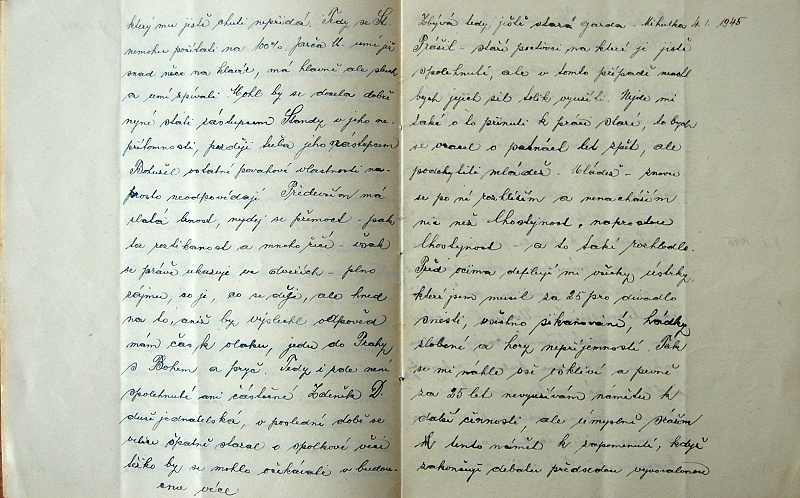 který mu jistě chuti nepřidá. Tedy se St.
nemohu počítati na 100%. Jarča U. umí při
snad něco na klavír, má hlavně ale sluch
a umí zpívati. Mohl by se docela dobře
nyní státi zástupcem Standy v jeho ne-
přítomnosti, později třeba jeho zástupcem
Bohužel ostatní povahové vlastnosti na-
prosto neodpovídají. Především má
zlatá lenost, nejdej se přemoct - pak
ta roztikanost a mnoho řečí - však
se právě ukazuje ve dveřích - plno
zájmu, co je, co se děje, ale hned
na to, aniž by vyslechl odpověď
mám čas k vlaku, jedu do Prahy
s Bohem a pryč. Tedy i zde není
spolehnutí ani částečné. Zdeněk D.
duše jednatelská, v poslední době se
velice špatně staral o spolkové věci
těžko by se mohlo očekávati v budou-
cnu více
Zbývá tedy ještě stará garda. Mikulka 4.1. 1945
Prášil - staří poctivci na které je jistě
spolehnutí, ale v tomto případě nechtěl
bych jejich sil tolik využíti. Nejde mi
také o to přinuti k práci staré, to bych
se vracel o patnáct let zpět, ale
podchytiti mládež. Mládež - znovu
se po ní rozhlížím a nenacházím
nic než lhostejnost, naprostou
lhostejnost - a to také rozhodlo.
Před očima defilují mi všechny ústrky,
které jsem musil za 25 pro divadlo
snésti, všechno sikanování, hádky
zlobení a hory nepříjemností. Tak
se mi náhle vše oškliví a prvně
za 25 let nevyužívám námětu k
další činnosti, ale úmyslně snažím
tento námět k zapomenutí, když
zakončuji debatu předsedou vyvovalanou